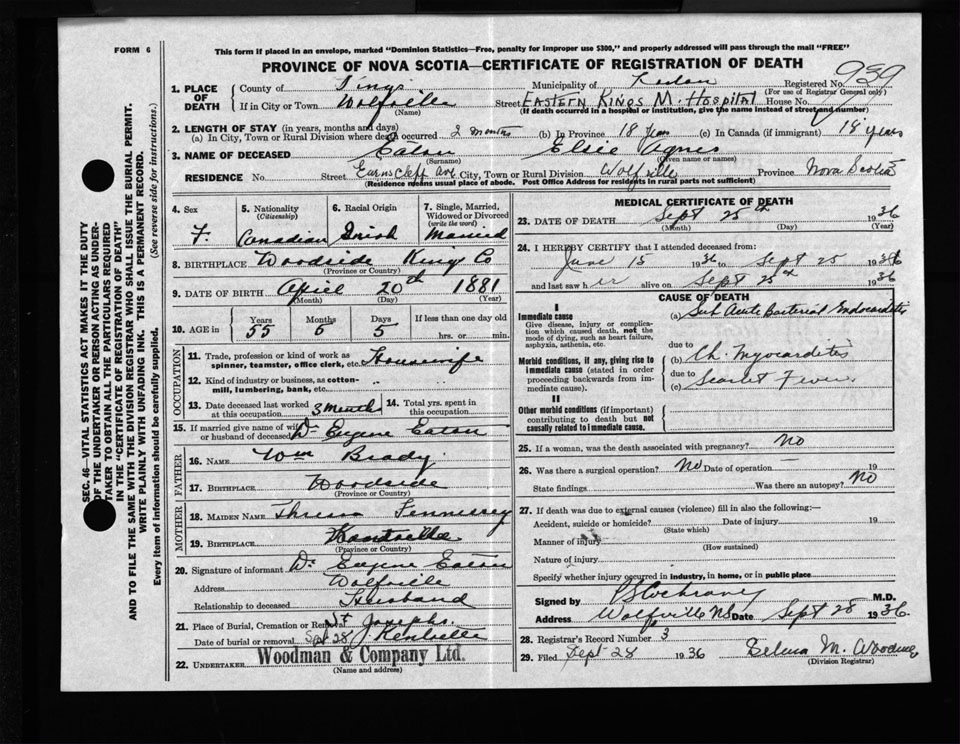 FORM 6
This form if placed in an envelope, marked "Dominion Statistics—Free, penalty for improper use $300," and properly addressed will pass through the mail "FREE"
PROVINCE OF NOVA SCOTIA—CERTIFICATE OF REGISTRATION OF DEATH
SEC. 46—VITAL STATISTICS ACT MAKES IT THE DUTY
OF THE UNDERTAKER OR PERSON ACTING AS UNDER-
TAKER TO OBTAIN ALL THE PARTICULARS REQUIRED
IN THE "CERTIFICATE OF REGISTRATION OF DEATH"
AND TO FILE THE SAME WITH THE DIVISION REGISTRAR WHO SHALL ISSUE THE BURIAL PERMIT.
WRITE PLAINLY WITH UNFADING INK. THIS IS A PERMANENT RECORD.
Every item of information should be carefully supplied. (See reverse side for instructions.)
1. PLACE OF DEATH
County of Kings Municipality of Registered No. 959
(For use of Registrar General only)
If in City or Town Wolfville Street EASTERN KINGS M. HOSPITAL House No.
(Name) (If death occurred in a hospital or institution, give the name instead of street and number)
2. LENGTH OF STAY (in years, months and days)
(a) In City, Town or Rural Division where death occurred 2 months (b) In Province 18 years (c) In Canada (if immigrant) 18 years
3. NAME OF DECEASED Eaton Elsie Agnes
(Surname) (Given name or names)
RESIDENCE No. Street Earnscliff Ave City, Town or Rural Division Wolfville Province Nova Scotia
(Residence means usual place of abode. Post Office Address for residents in rural parts not sufficient)
4. Sex F.
5. Nationality (Citizenship) Canadian
6. Racial Origin Irish
7. Single, Married, Widowed or Divorced (write the word) Married
8. BIRTHPLACE Woodside Kings Co
(Province or Country)
9. DATE OF BIRTH April 20th 1881
(Month) (Day) (Year)
10. AGE in Years 55 Months 5 Days 5 If less than one day old hrs. or min.
OCCUPATION
11. Trade, profession or kind of work as spinner, teamster, office clerk, etc. Housewife
12. Kind of industry or business, as cotton-mill, lumbering, bank, etc. " "
13. Date deceased last worked at this occupation 3 Month 14. Total yrs. spent in this occupation
15. If married give name of wife or husband of deceased Dr Eugene Eaton
FATHER
16. NAME Wm Brady
17. BIRTHPLACE Woodside
(Province or Country)
MOTHER
18. MAIDEN NAME Thresa Tennessey
19. BIRTHPLACE
(Province or Country)
20. Signature of informant Dr Eugene Eaton
Address Wolfville
Relationship to deceased Husband
21. Place of Burial, Cremation or Removal St Josephs
Date of burial or removal Sept 28 Kentville
22. UNDERTAKER Woodman & Company Ltd.
(Name and address)
MEDICAL CERTIFICATE OF DEATH
23. DATE OF DEATH Sept 25th 1936
(Month) (Day) (Year)
24. I HEREBY CERTIFY that I attended deceased from:
June 15 1936 to Sept 25 1936
and last saw her alive on Sept 25th 1936
CAUSE OF DEATH
I
Immediate cause
Give disease, injury or complication which caused death, not the mode of dying, such as heart failure, asphyxia, asthenia, etc.
(a) Sub Acute Bacterial Endocarditis
due to
Morbid conditions, if any, giving rise to immediate cause (stated in order proceeding backwards from immediate cause).
(b) Ch. Myocarditis
due to
(c) Scarlet Fever
II
Other morbid conditions (if important) contributing to death but not causally related to immediate cause.
25. If a woman, was the death associated with pregnancy? No
26. Was there a surgical operation? No Date of operation — 19
State findings Was there an autopsy? No
27. If death was due to external causes (violence) fill in also the following:—
Accident, suicide or homicide? Date of injury 19
(State which)
Manner of injury
(How sustained)
Nature of injury
Specify whether injury occurred in industry, in home, or in public place
Signed by Cochrane M.D.
Address Wolfville NS Date Sept 28 1936
28. Registrar's Record Number 3
29. Filed Sept 28 1936 Selma M. Woodman
(Division Registrar)